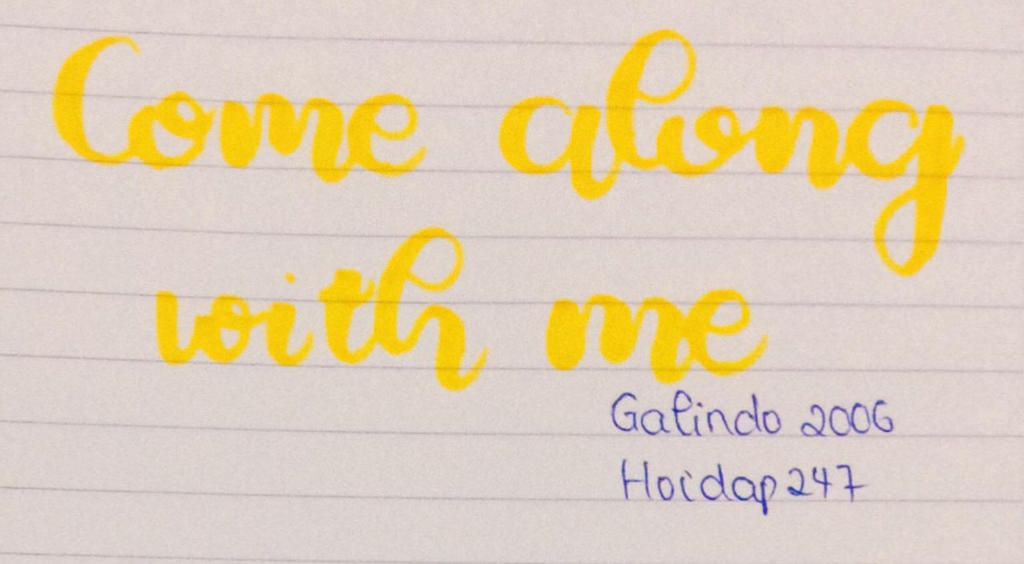 Come along
with me
Galindo 2006
Hoidap247